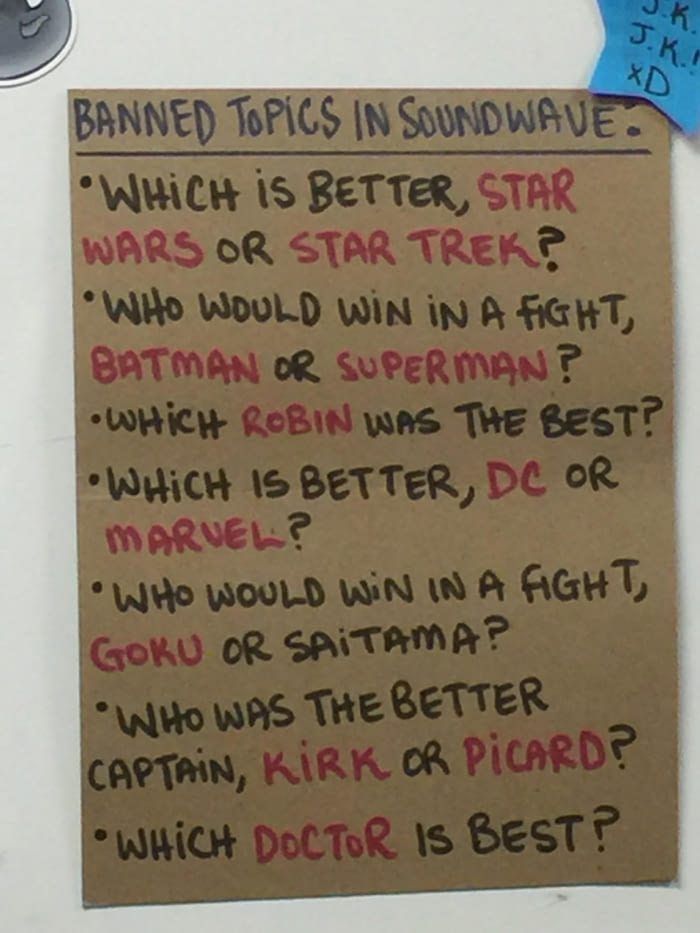 J.K.
J.K.!
XD
BANNED TOPICS IN SOUNDWAVE:
•WHICH IS BETTER, STAR
WARS OR STAR TREK?
•WHO WOULD WIN IN A FIGHT,
BATMAN OR SUPERMAN?
•WHICH ROBIN WAS THE BEST?
•WHICH IS BETTER, DC OR
MARVEL?
•WHO WOULD WIN IN A FIGHT,
GOKU OR SAITAMA?
•WHO WAS THE BETTER
CAPTAIN, KIRK OR PICARD?
•WHICH DOCTOR IS BEST?